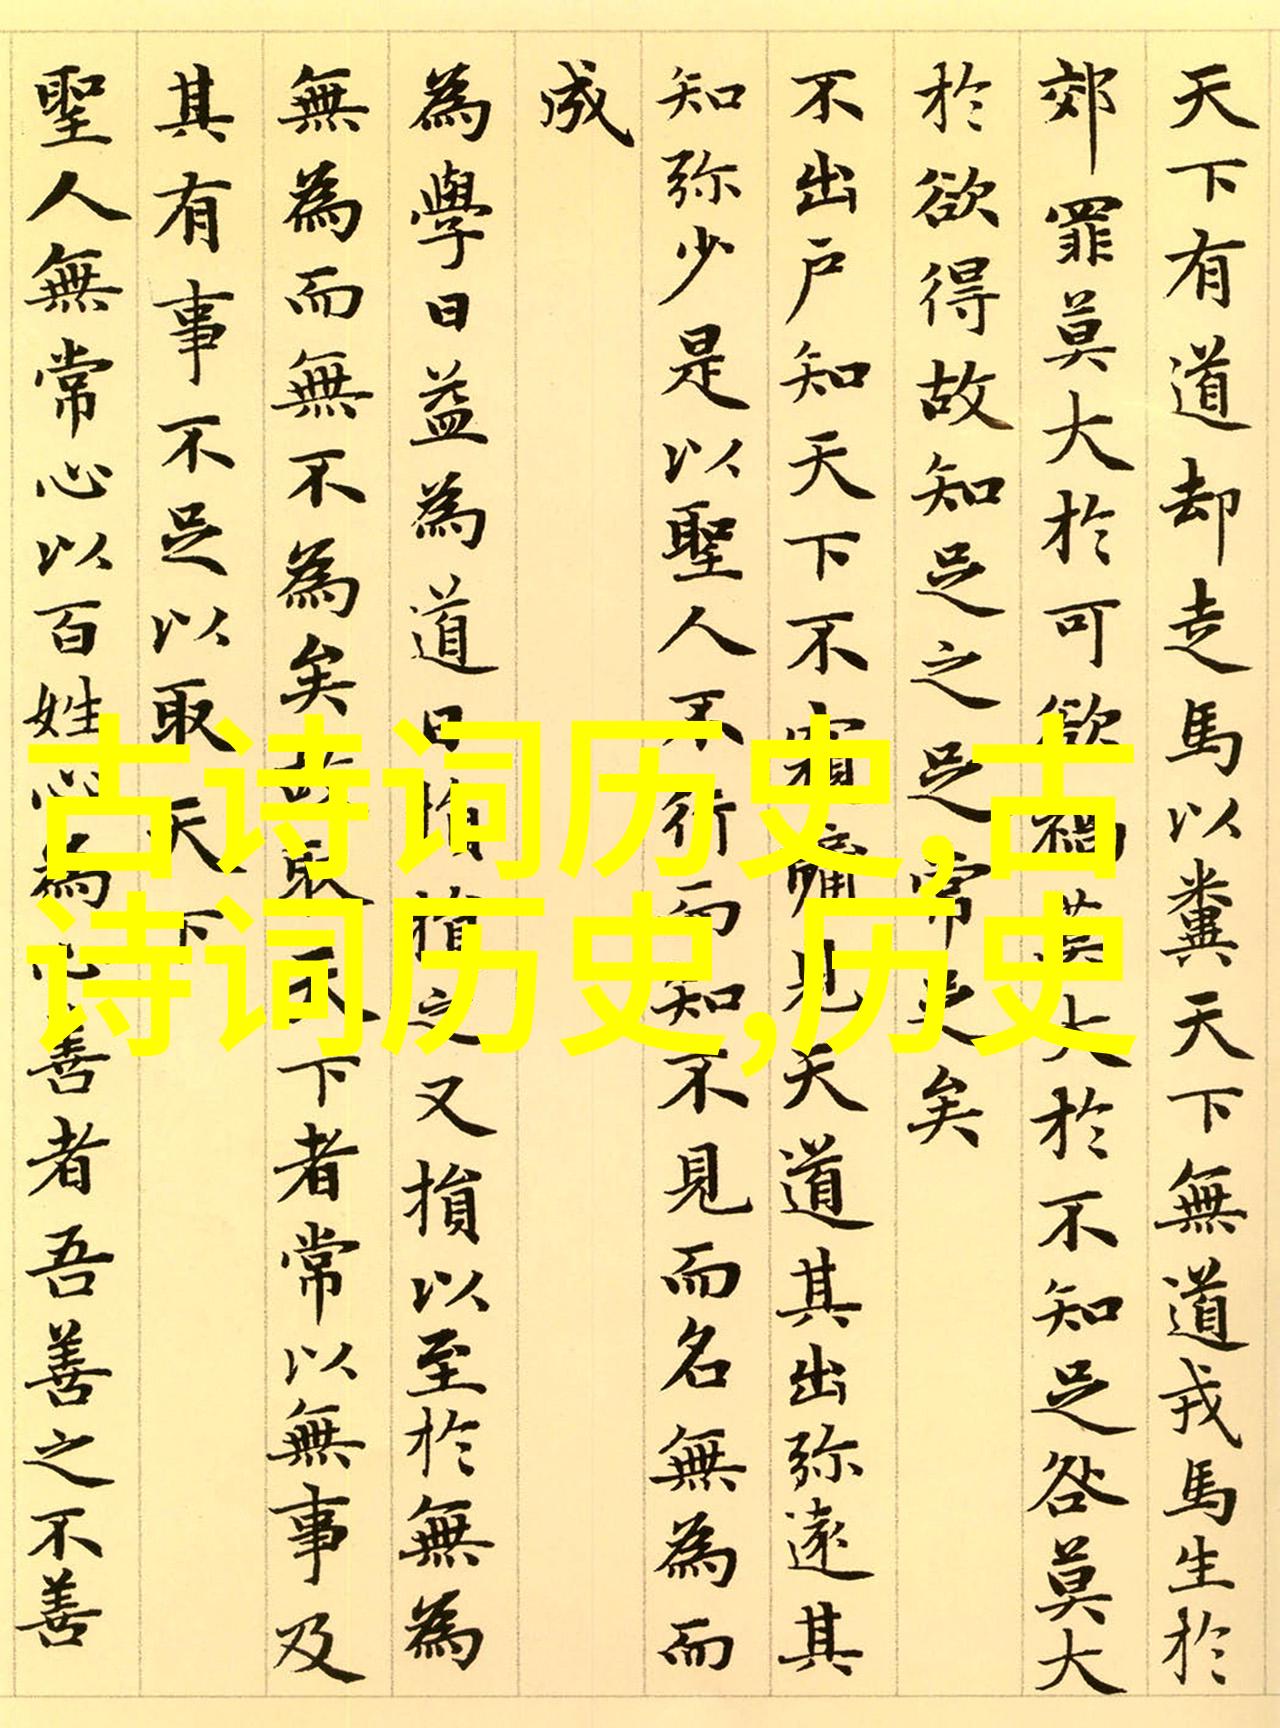 天下有道却走馬以糞天下無道戎馬生於
郊罪莫大於可欲禍莫大於不知足咎莫大
於欲得故知足之足常足矣
不出戶知天下不窺牖見天道其出弥遠其
知弥少是以聖人不行而知不見而名無為而
成
為學日益為道日損損之又損以至於無為
無為而無不為矣故取天下者常以無事及
其有事不足以取天下
聖人無常心以百姓心為心善者吾善之不善
古诗词历史,古
诗词历史,历史